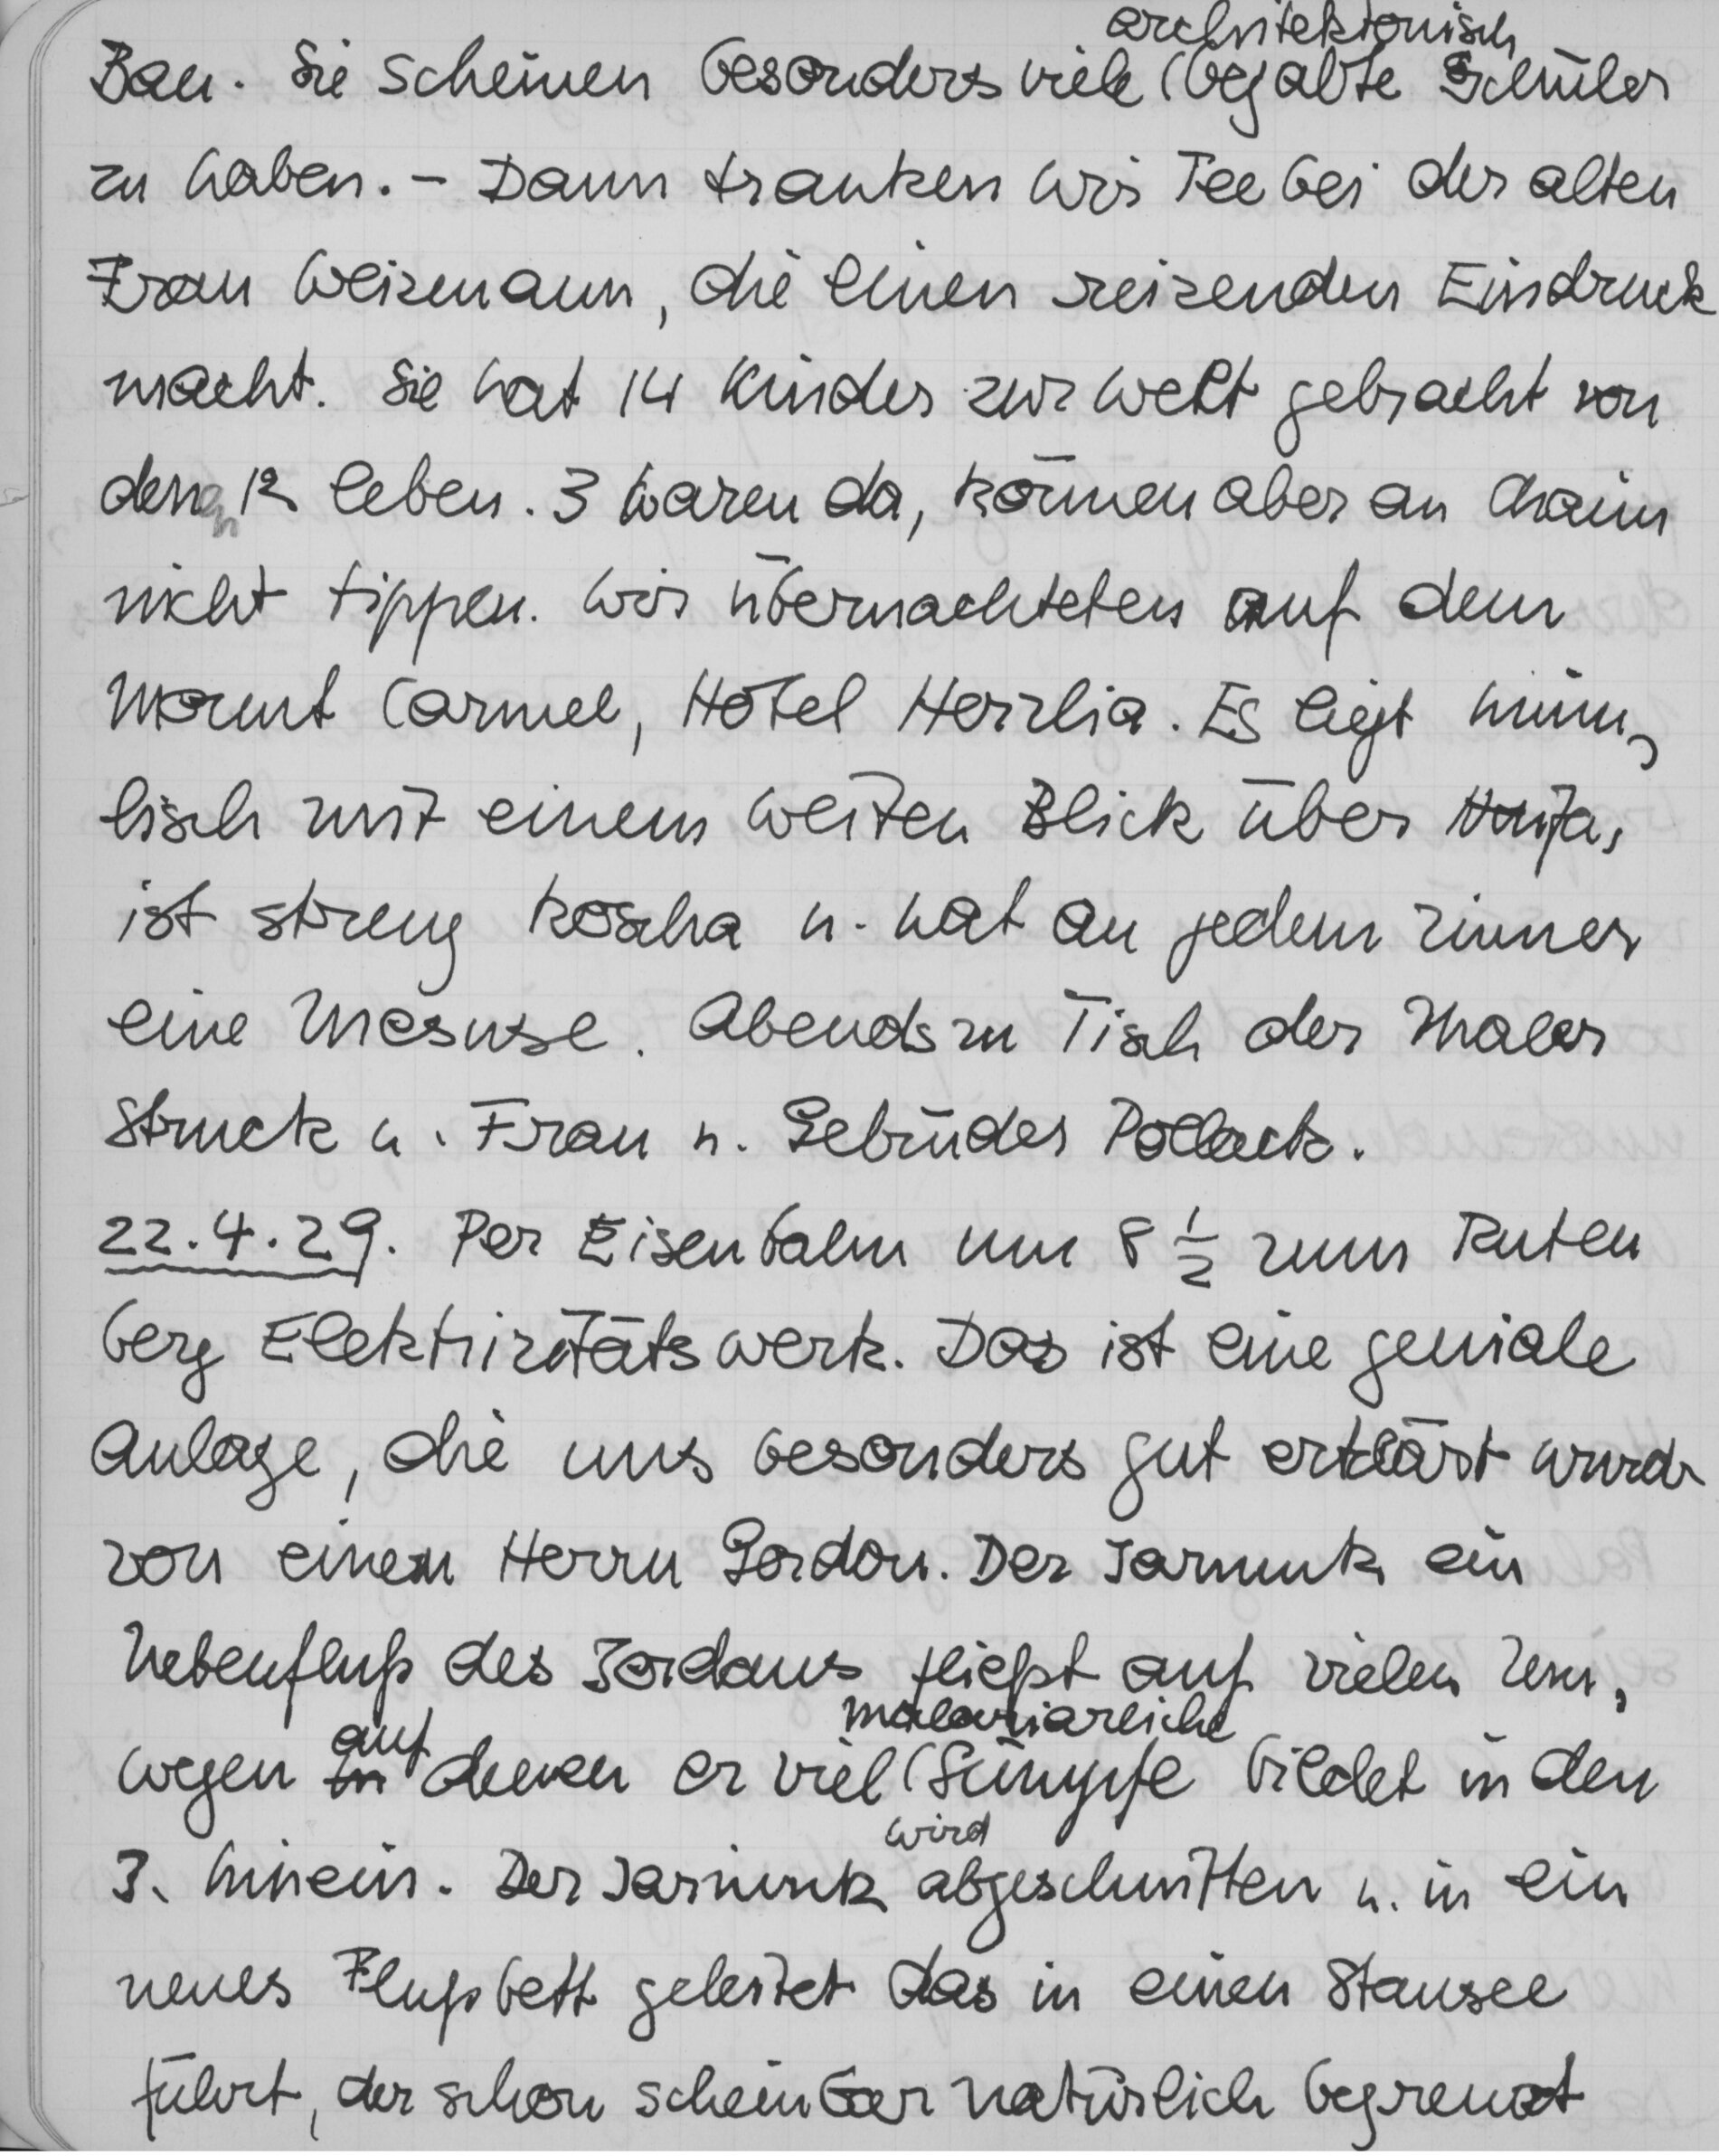 architektonisch
Bau. Sie scheinen besonders viele (begabte Schüler
zu haben. – Dann tranken wir Tee bei der alten
Frau Weizmann, die einen reizenden Eindruck
macht. Sie hat 14 Kinder zur Welt gebracht von
denen 12 leben. 3 waren da, können aber an Chaim
nicht tippen. Wir übernachteten auf dem
Mount Carmel, Hotel Herzlia. Es liegt himm,
lisch mit einem weiten Blick über Haifa,
ist streng koscha u. hat an jedem Zimmer
eine Mesuse. Abends zu Tisch der Maler
Struck u. Frau u. Gebrüder Pollack.
22.4.29. Per Eisenbahn um 8 1/2 zum Ruten
berg Elektrizitätswerk. Das ist eine geniale
Anlage, die uns besonders gut erklärt wurde
von einem Herrn Gordon. Der Jarmuk ein
Nebenfluß des Jordans fließt auf vielen Um,
auf malariareiche
wegen in denen er viel (Sümpfe bildet in den
wird
J. hinein. Der Jarmuk abgeschnitten u. in ein
neues Flußbett geleitet das in einen Stausee
führt, der schon scheinbar natürlich begrenzt